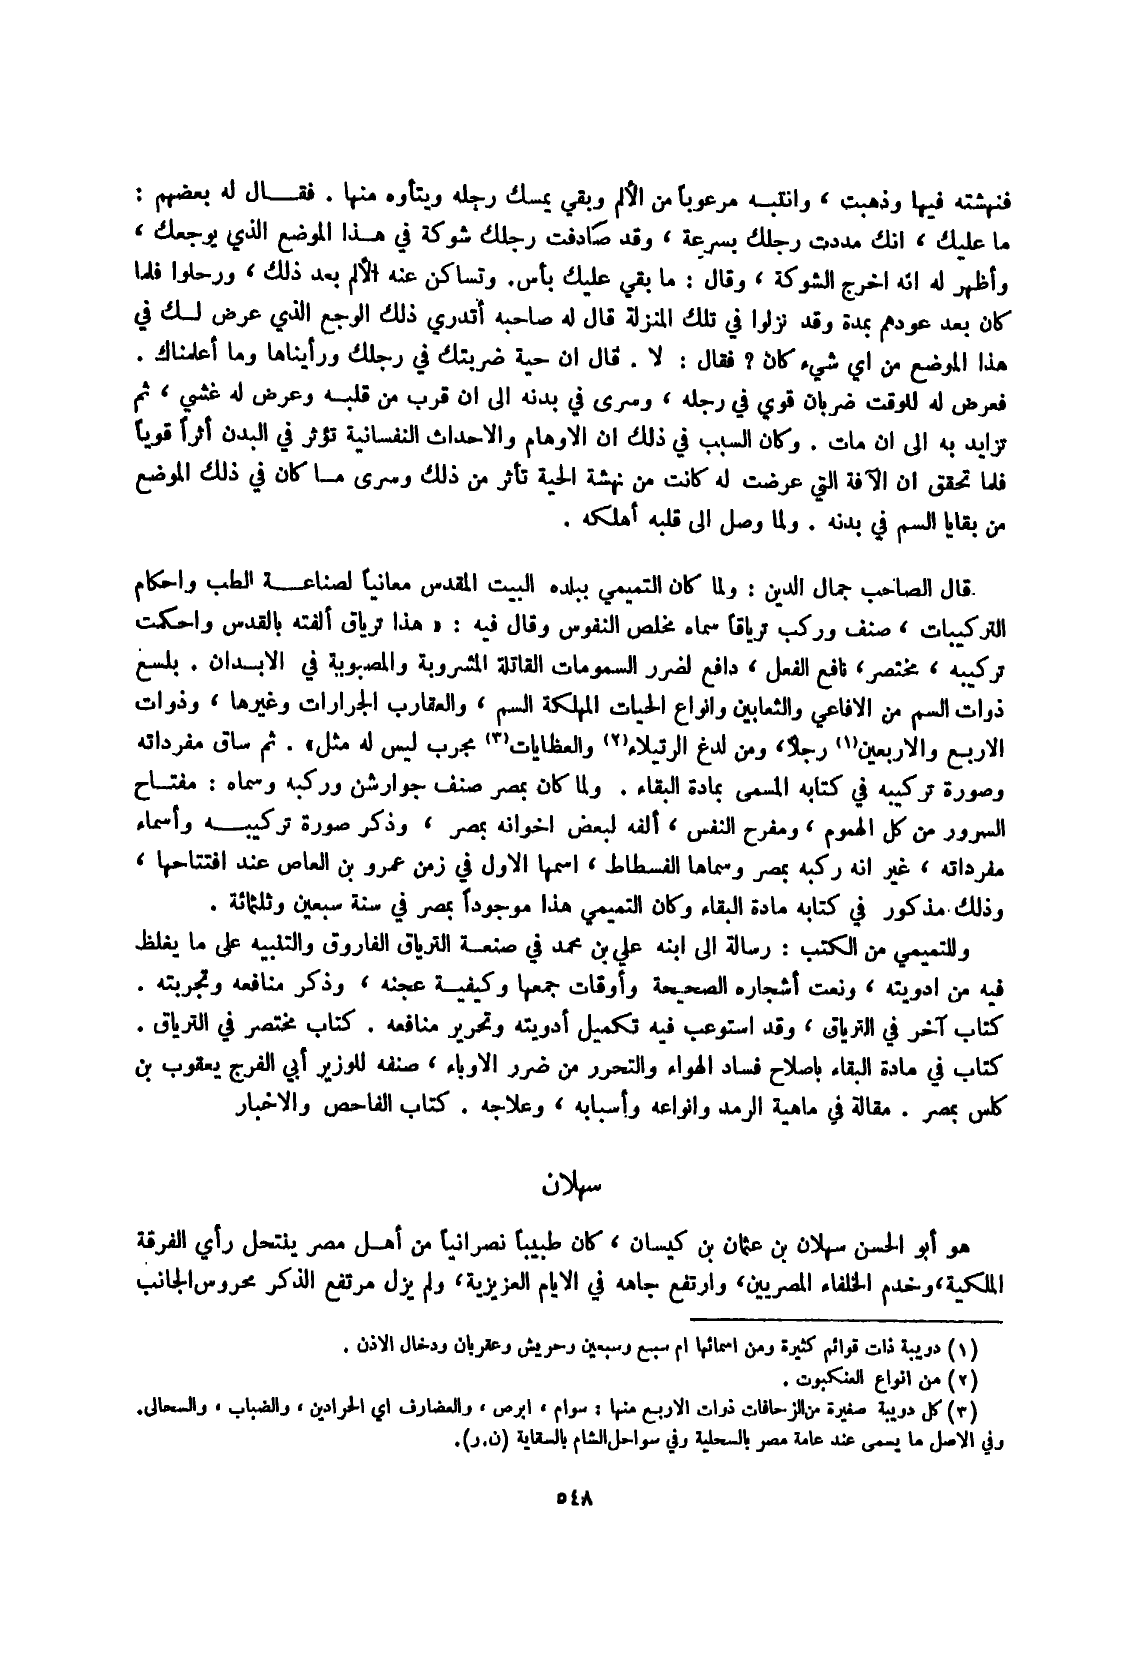 فنهشته فيها وذهبت ، وانتبـه مرعوباً من الألم وبقي يمسك رجله ويتأوه منها . فقـــال له بعضهم :
ما عليك ، انك مددت رجلك بسرعة ، وقد صادفت رجلك شوكة في هـذا الموضع الذي يوجعك ،
وأظهر له انه اخرج الشوكة ، وقال : ما بقي عليك بأس. وتساكن عنه الألم بعد ذلك ، ورحلوا فلما
كان بعد عودهم بمدة وقد نزلوا في تلك المنزلة قال له صاحبه أتدري ذلك الوجع الذي عرض لـك في
هذا الموضع من اي شيء كان ? فقال : لا . قال ان حية ضربتك في رجلك ورأيناها وما أعلمناك .
فعرض له للوقت ضربان قوي في رجله ، وسرى في بدنه الى ان قرب من قلبـه وعرض له غشي ، ثم
تزايد به الى ان مات . وكان السبب في ذلك ان الاوهام والاحداث النفسانية تؤثر في البدن أثراً قوياً
فلما تحقق ان الآفة التي عرضت له كانت من نهشة الحية تأثر من ذلك وسرى مـا كان في ذلك الموضع
من بقايا السم في بدنه . ولما وصل الى قلبه أهلكه .
قال الصاحب جمال الدين : ولما كان التميمي ببلده البيت المقدس معانياً لصناعـــة الطب واحكام
التركيبات ، صنف وركب ترياقاً سماه مخلص النفوس وقال فيه : « هذا ترياق ألفته بالقدس واحكت
تركيبه ، مختصر، نافع الفعل ، دافع لضرر السمومات القاتلة المشروبة والمصبوبة في الابـدان . بلسع
ذوات السم من الافاعي والثعابين وانواع الحيات المهلكة السم ، والعقارب الجرارات وغيرها ، وذوات
الاربـع والاربعين(١) رجلًا، ومن لدغ الرتيلاء(٢) والعظايات(٣) مجرب ليس له مثل» . ثم ساق مفرداته
وصورة تركيبه في كتابه المسمى بمادة البقاء . ولما كان بمصر صنف جوارشن وركبه وسماه : مفتـاح
السرور من كل الهموم ، ومفرح النفس ، ألفه لبعض اخوانه بمصر ، وذكر صورة تركيبـــه وأسماء
مفرداته ، غير انه ركبه بمصر وسماها الفسطاط ، اسمها الاول في زمن عمرو بن العاص عند افتتاحها ،
وذلك مذكور في كتابه مادة البقاء وكان التميمي هذا موجوداً بمصر في سنة سبعين وثلثمائة .
وللتميمي من الكتب : رسالة الى ابنه علي بن محمد في صنعـة الترياق الفاروق والتنبيه على ما يغلظ
فيه من ادويته ، ونعت أشجاره الصحيحة وأوقات جمعها وكيفيـة عجنه ، وذكر منافعه وتجربته .
كتاب آخر في الترياق ، وقد استوعب فيه تكميل أدويته وتحرير منافعه . كتاب مختصر في الترياق .
كتاب في مادة البقاء باصلاح فساد الهواء والتحرر من ضرر الاوباء ، صنفه للوزير أبي الفرج يعقوب بن
كلس بمصر . مقالة في ماهية الرمد وانواعه وأسبابه ، وعلاجه . كتاب الفاحص والاخبار
سهلان
هو أبو الحسن سهلان بن عثمان بن كيسان ، كان طبيباً نصرانياً من أهـل مصر ينتحل رأي الفرقة
الملكية، وخدم الخلفاء المصريين، وارتفع جاهه في الايام العزيزية، ولم يزل مرتفع الذكر محروس الجانب
(١) دويبة ذات قوائم كثيرة ومن اسمائها ام سبع وسبعين وحريش وعقربان ودخال الاذن .
(٢) من انواع العنكبوت .
(٣) كل دويبة صغيرة من الزحافات ذوات الاربع منها : سوام ، ابرص ، والعضارف اي الحرادين ، والضباب ، والسحالى.
وفي الاصل ما يسمى عند عامة مصر بالسحلية وفي سواحل الشام بالسقاية (ن.ر).
٥٤٨